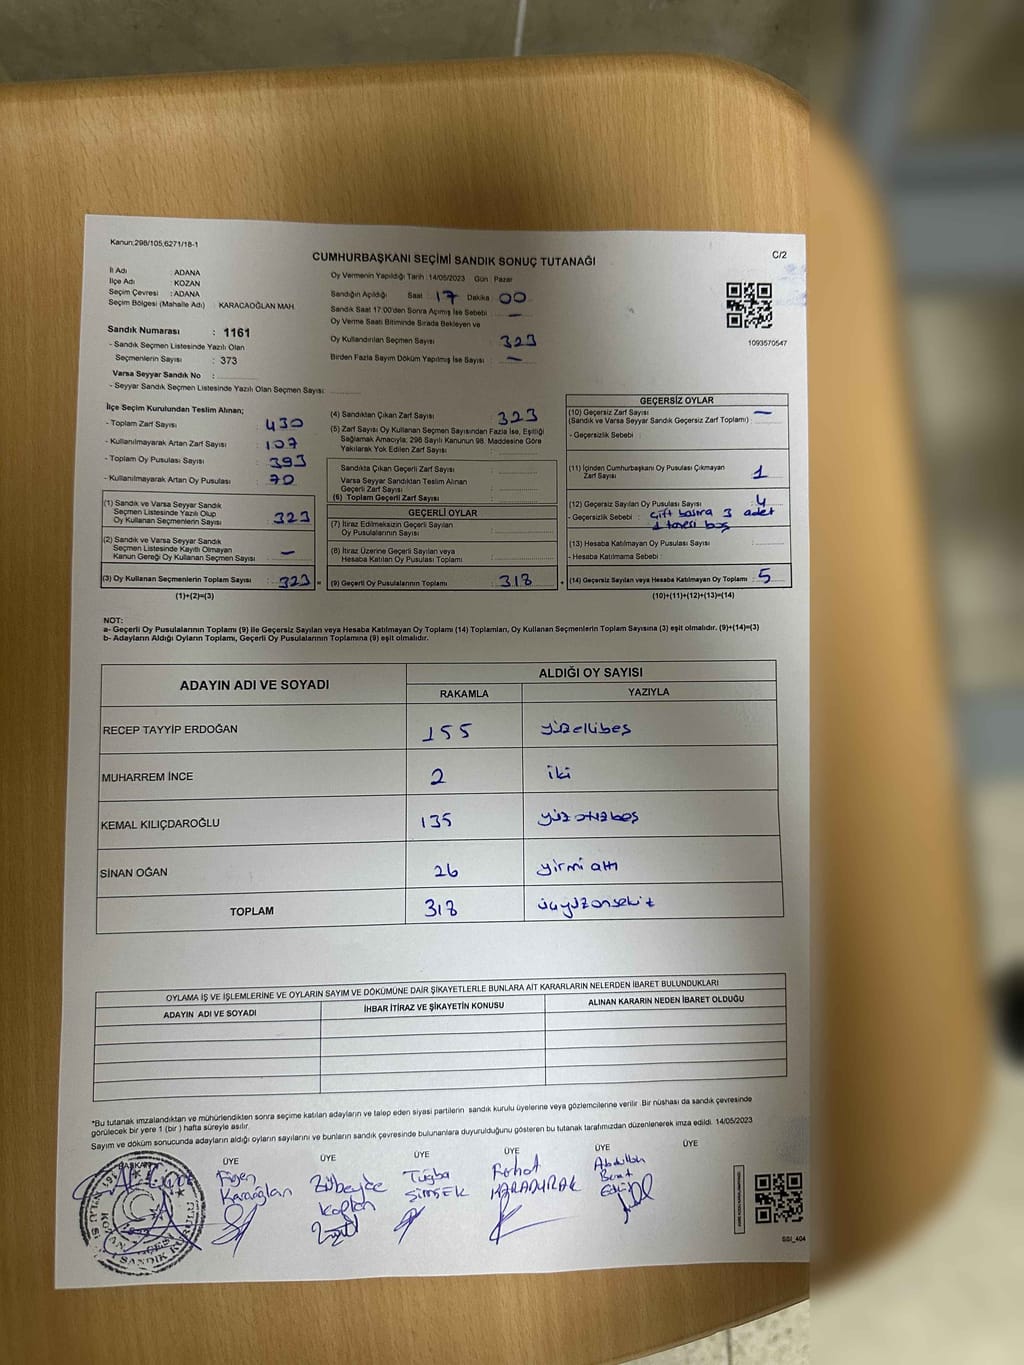 Kanun:298/105,6271/18-1
C/2
CUMHURBAŞKANI SEÇİMİ SANDIK SONUÇ TUTANAĞI
İl Adı : ADANA
İlçe Adı : KOZAN
Seçim Çevresi : ADANA
Seçim Bölgesi (Mahalle Adı) : KARACAOĞLAN MAH
Sandık Numarası : 1161
- Sandık Seçmen Listesinde Yazılı Olan
Seçmenlerin Sayısı : 373
Varsa Seyyar Sandık No :
- Seyyar Sandık Seçmen Listesinde Yazılı Olan Seçmen Sayısı:
Oy Vermenin Yapıldığı Tarih :14/05/2023 Gün : Pazar
Sandığın Açıldığı Saat 17 Dakika 00
Sandık Saat 17:00'den Sonra Açımış İse Sebebi —
Oy Verme Saati Bitiminde Sırada Bekleyen ve
Oy Kullandırılan Seçmen Sayısı : 323
Birden Fazla Sayım Döküm Yapılmış İse Sayısı : —
1093570547
İlçe Seçim Kurulundan Teslim Alınan;
- Toplam Zarf Sayısı : 430
- Kullanılmayarak Artan Zarf Sayısı : 107
- Toplam Oy Pusulası Sayısı : 393
- Kullanılmayarak Artan Oy Pusulası : 70
(1) Sandık ve Varsa Seyyar Sandık
Seçmen Listesinde Yazılı Olup
Oy Kullanan Seçmenlerin Sayısı : 323
(2) Sandık ve Varsa Seyyar Sandık
Seçmen Listesinde Kayıtlı Olmayan
Kanun Gereği Oy Kullanan Seçmen Sayısı : —
(3) Oy Kullanan Seçmenlerin Toplam Sayısı : 323 =
(1)+(2)=(3)
(4) Sandıktan Çıkan Zarf Sayısı : 323
(5) Zarf Sayısı Oy Kullanan Seçmen Sayısından Fazla İse, Eşitliği
Sağlamak Amacıyla; 298 Sayılı Kanunun 98. Maddesine Göre
Yakılarak Yok Edilen Zarf Sayısı :
Sandıkta Çıkan Geçerli Zarf Sayısı :
Varsa Seyyar Sandıktan Teslim Alınan
Geçerli Zarf Sayısı :
(6) Toplam Geçerli Zarf Sayısı :
GEÇERLİ OYLAR
(7) İtiraz Edilmeksizin Geçerli Sayılan
Oy Pusulası Sayısı :
(8) İtiraz Üzerine Geçerli Sayılan veya
Hesaba Katılan Oy Pusulası Toplamı :
(9) Geçerli Oy Pusulalarının Toplamı : 318 +
GEÇERSİZ OYLAR
(10) Geçersiz Zarf Sayısı —
(Sandık ve Varsa Seyyar Sandık Geçersiz Zarf Toplamı) :
- Geçersizlik Sebebi :
(11) İçinden Cumhurbaşkanı Oy Pusulası Çıkmayan
Zarf Sayısı : 1
(12) Geçersiz Sayılan Oy Pusulası Sayısı : 4
- Geçersizlik Sebebi : çift basma 3 adet
1 tanesi boş
(13) Hesaba Katılmayan Oy Pusulası Sayısı :
- Hesaba Katılmama Sebebi :
(14) Geçersiz Sayılan veya Hesaba Katılmayan Oy Toplamı : 5
(10)+(11)+(12)+(13)=(14)
NOT:
a- Geçerli Oy Pusulalarının Toplamı (9) ile Geçersiz Sayılan veya Hesaba Katılmayan Oy Toplamı (14) Toplamları, Oy Kullanan Seçmenlerin Toplam Sayısına (3) eşit olmalıdır. (9)+(14)=(3)
b- Adayların Aldığı Oyların Toplamı, Geçerli Oy Pusulalarının Toplamına (9) eşit olmalıdır.
ADAYIN ADI VE SOYADI
ALDIĞI OY SAYISI
RAKAMLA YAZIYLA
RECEP TAYYİP ERDOĞAN 155 yüzellibeş
MUHARREM İNCE 2 iki
KEMAL KILIÇDAROĞLU 135 yüzotuzbeş
SİNAN OĞAN 26 yirmi altı
TOPLAM 318 üçyüzonsekiz
OYLAMA İŞ VE İŞLEMLERİNE VE OYLARIN SAYIM VE DÖKÜMÜNE DAİR ŞİKAYETLERLE BUNLARA AİT KARARLARIN NELERDEN İBARET BULUNDUKLARI
ADAYIN ADI VE SOYADI İHBAR İTİRAZ VE ŞİKAYETİN KONUSU ALINAN KARARIN NEDEN İBARET OLDUĞU
*Bu tutanak imzalandıktan ve mühürlendikten sonra seçime katılan adayların ve talep eden siyasi partilerin sandık kurulu üyelerine veya gözlemcilerine verilir. Bir nüshası da sandık çevresinde
görülecek bir yere 1 (bir) hafta süreyle asılır.
Sayım ve döküm sonucunda adayların aldığı oyların sayılarını ve bunların sandık çevresinde bulunanlara duyurulduğunu gösteren bu tutanak tarafımızdan düzenlenerek imza edildi. 14/05/2023
BAŞKAN ÜYE ÜYE ÜYE ÜYE ÜYE ÜYE
Figen
Karaoğlan
Zübeyde
Kaplan
Tuğba
ŞİMŞEK
Ferhat
KARADURAK
Abdullah
Berat
SSİ_404